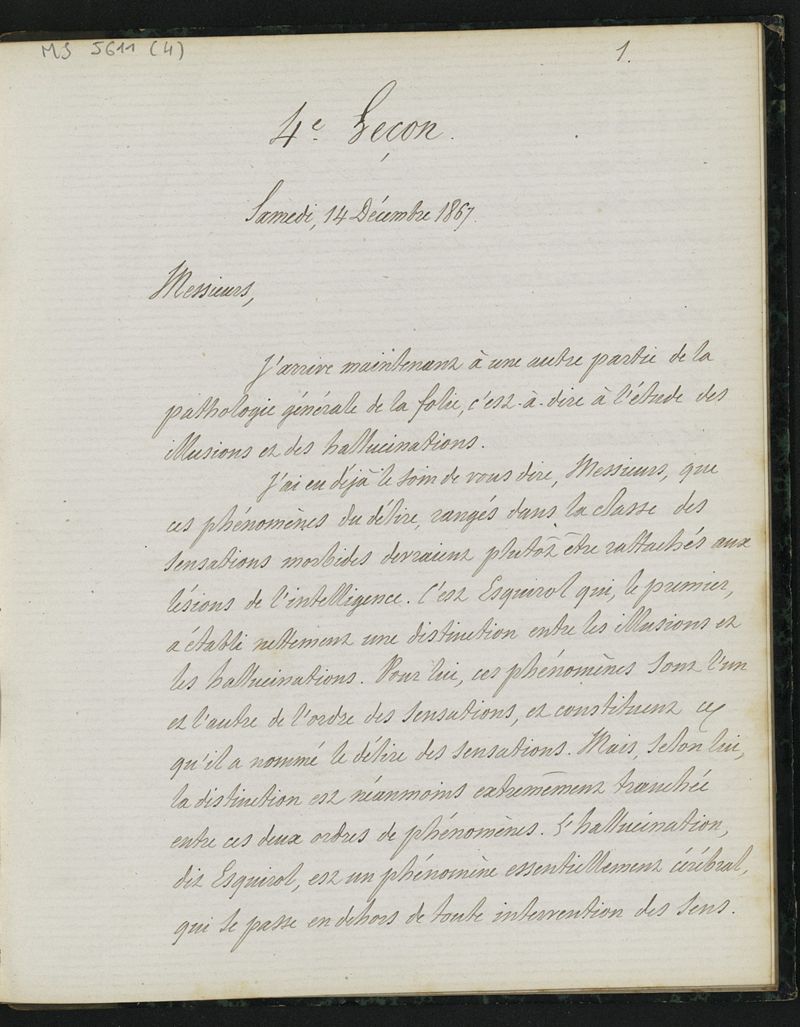 MS 5611 (4)
1.
4e Leçon.
Samedi, 14 Décembre 1867.
Messieurs,
J'arrive maintenant à une autre partie de la
pathologie générale de la folie, c'est-à-dire à l'étude des
illusions et des hallucinations.
J'ai eu déjà le soin de vous dire, Messieurs, que
ces phénomènes du délire, rangés dans la classe des
sensations morbides devraient plutôt être rattachés aux
lésions de l'intelligence. C'est Esquirol qui, le premier,
a établi nettement une distinction entre les illusions et
les hallucinations. Pour lui, ces phénomènes sont l'un
et l'autre de l'ordre des sensations, et constituent ce
qu'il a nommé le délire des sensations. Mais, selon lui,
la distinction est néanmoins extrêmement tranchée
entre ces deux ordres de phénomènes. L'hallucination,
dit Esquirol, est un phénomène essentiellement cérébral,
qui se passe en dehors de toute intervention des sens.